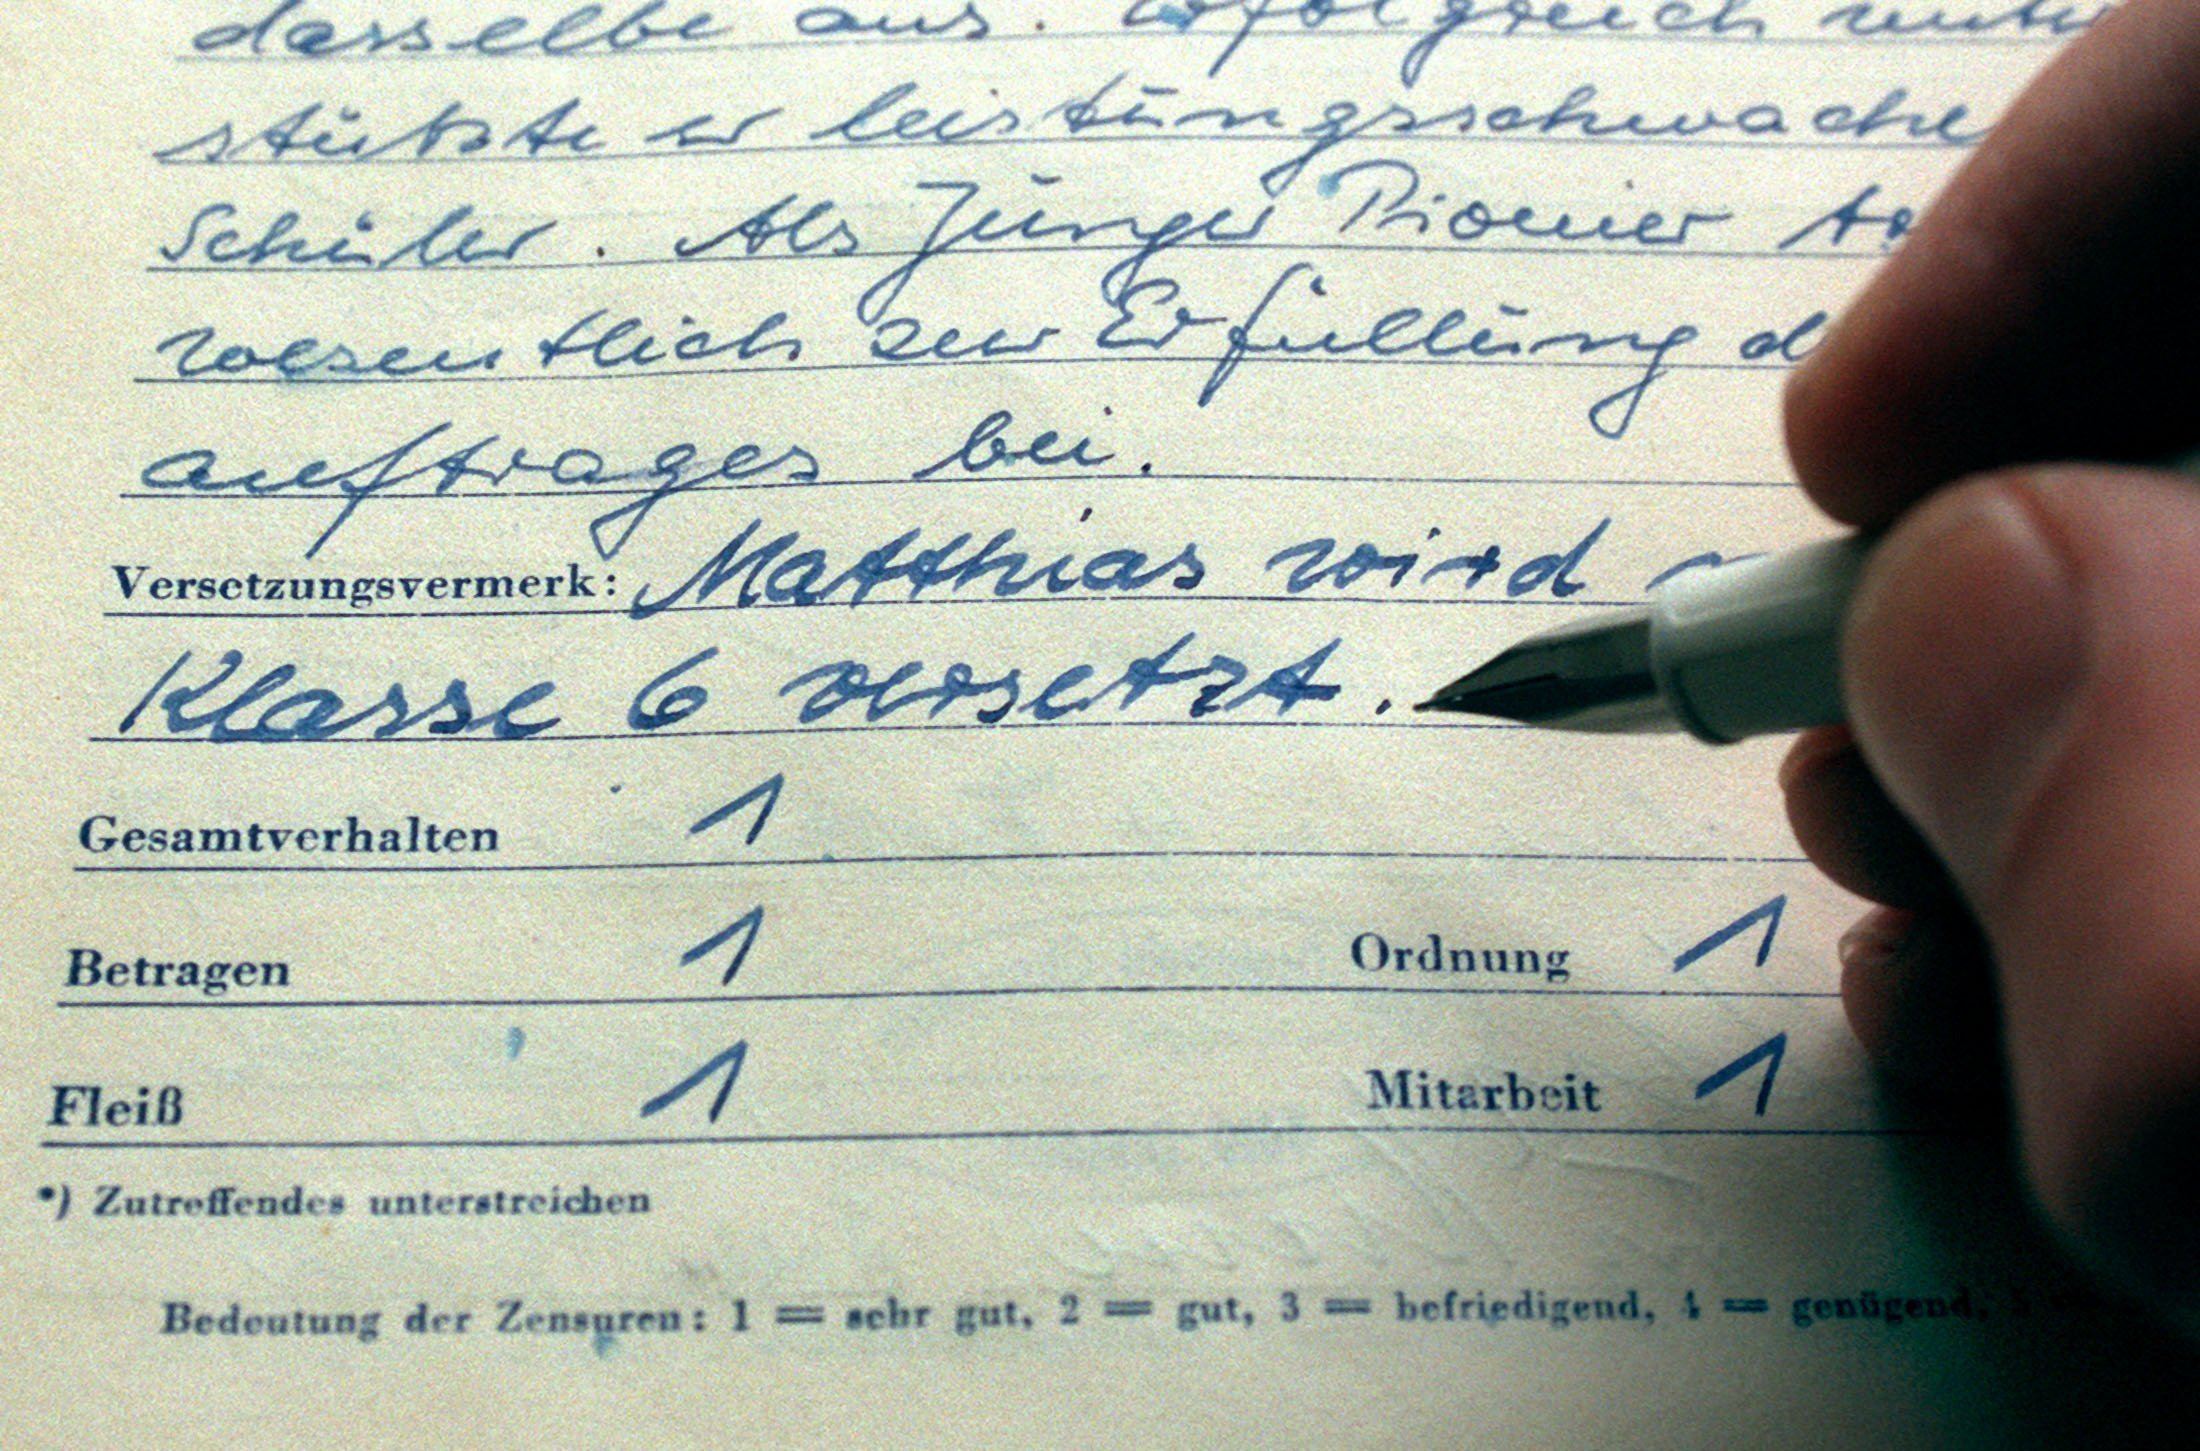 dasselbe aus. Erfolgreich unter
stützte er leistungsschwache
Schüler. Als Junger Pionier
wesentlich zur Erfüllung
auftrages bei.
Versetzungsvermerk: Matthias wird
Klasse 6 versetzt.
Gesamtverhalten 1
Betragen 1 Ordnung 1
Fleiß 1 Mitarbeit 1
*) Zutreffendes unterstreichen
Bedeutung der Zensuren: 1 = sehr gut, 2 = gut, 3 = befriedigend, 4 = genügend,